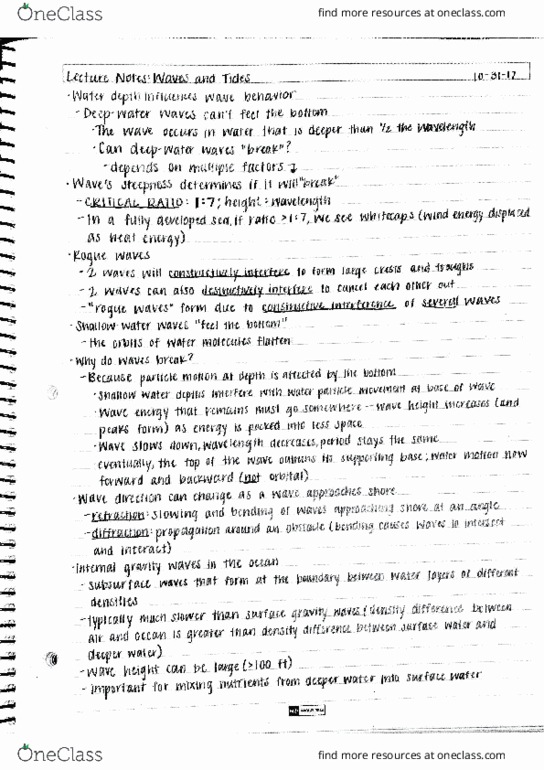 OneClass
find more resources at oneclass.com
Lecture Notes: Waves and Tides 10-31-17
· Water depth influences wave behavior
- Deep-water waves can't feel the bottom
· The wave occurs in water that is deeper than 1/2 the wavelength
· Can deep-water waves "break"?
- depends on multiple factors ↓
· Wave's steepness determines if it will "break"
- CRITICAL RATIO: 1:7; height:wavelength
- In a fully developed sea, if ratio >1:7, we see whitecaps (wind energy displaced
as heat energy)
· Rogue waves
- 2 waves will constructively interfere to form large crests and troughs
- 2 waves can also destructively interfere to cancel each other out
- "rogue waves" form due to constructive interference of several waves
· Shallow water waves "feel the bottom"
- the orbits of water molecules flatten
· Why do waves break?
- Because particle motion at depth is affected by the bottom
· Shallow water depths interfere with water particle movement at base of wave
· Wave energy that remains must go somewhere -- wave height increases (and
peaks form) as energy is packed into less space
· Wave slows down, wavelength decreases, period stays the same
eventually, the top of the wave outruns its supporting base; water motion now
forward and backward (not orbital)
· Wave direction can change as a wave approaches shore
- refraction: slowing and bending of waves approaching shore at an angle
- diffraction: propagation around an obstacle (bending causes waves to intersect
and interact)
· Internal gravity waves in the ocean
- subsurface waves that form at the boundary between water layers of different
densities
- typically much slower than surface gravity waves (density difference between
air and ocean is greater than density difference between surface water and
deeper water)
- Wave height can be large (≥100 ft)
- Important for mixing nutrients from deeper water into surface water
OneClass
find more resources at oneclass.com